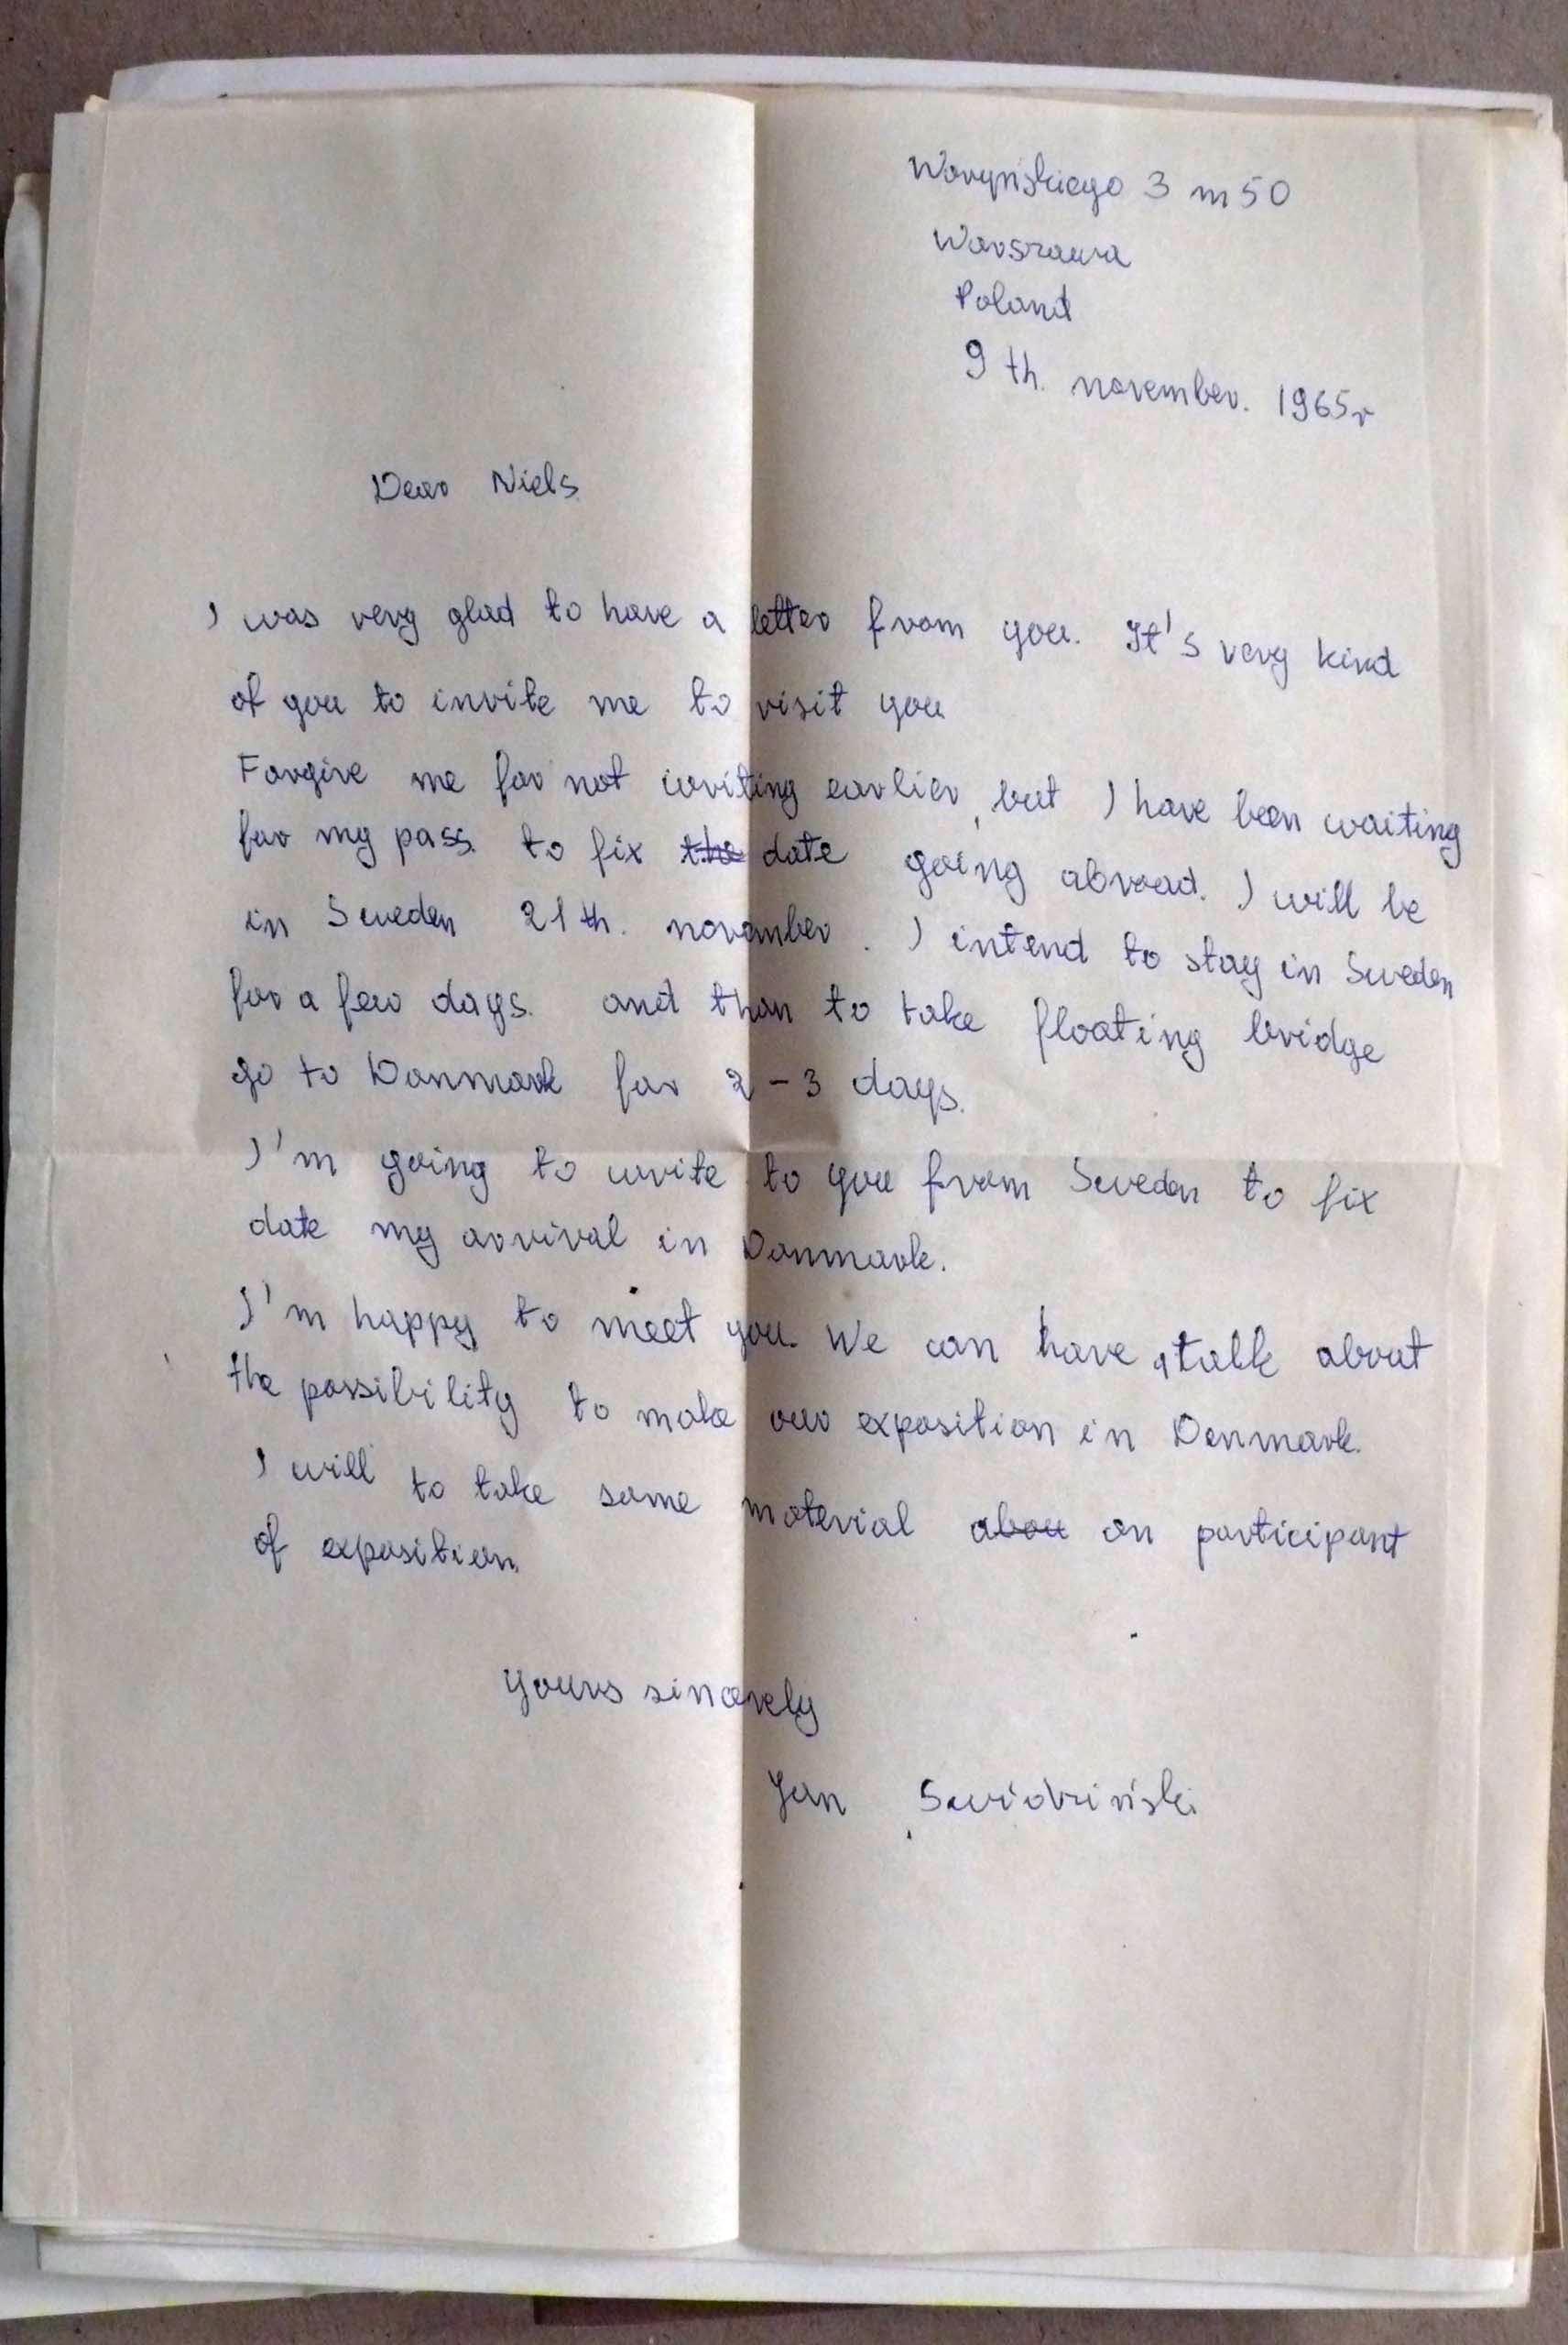 Waryńskiego 3 m 50
Warszawa
Poland
9 th. november. 1965r
Dear Niels
I was very glad to have a letter from you. It's very kind
of you to invite me to visit you
Forgive me for not writing earlier, but I have been waiting
for my pass. to fix the date going abroad. I will be
in Sweden 21th. november. I intend to stay in Sweden
for a few days. and than to take floating bridge
go to Danmark for 2-3 days.
I'm going to write to you from Sweden to fix
date my arrival in Danmark.
I'm happy to meet you. We can have a talk about
the possibility to make our exposition in Denmark.
I will to take some material abou on participant
of exposition.
Yours sincerely
Jan Świdziński